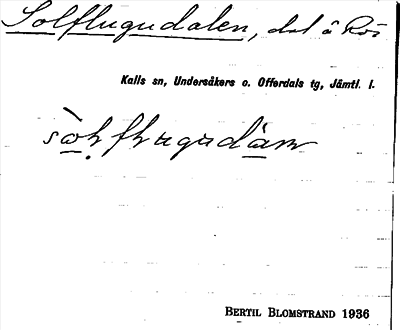 Solflugudalen, dal å Rös
Kalls sn, Undersåkers o. Offerdals tg, Jämtl. l.
BERTIL BLOMSTRAND 1936